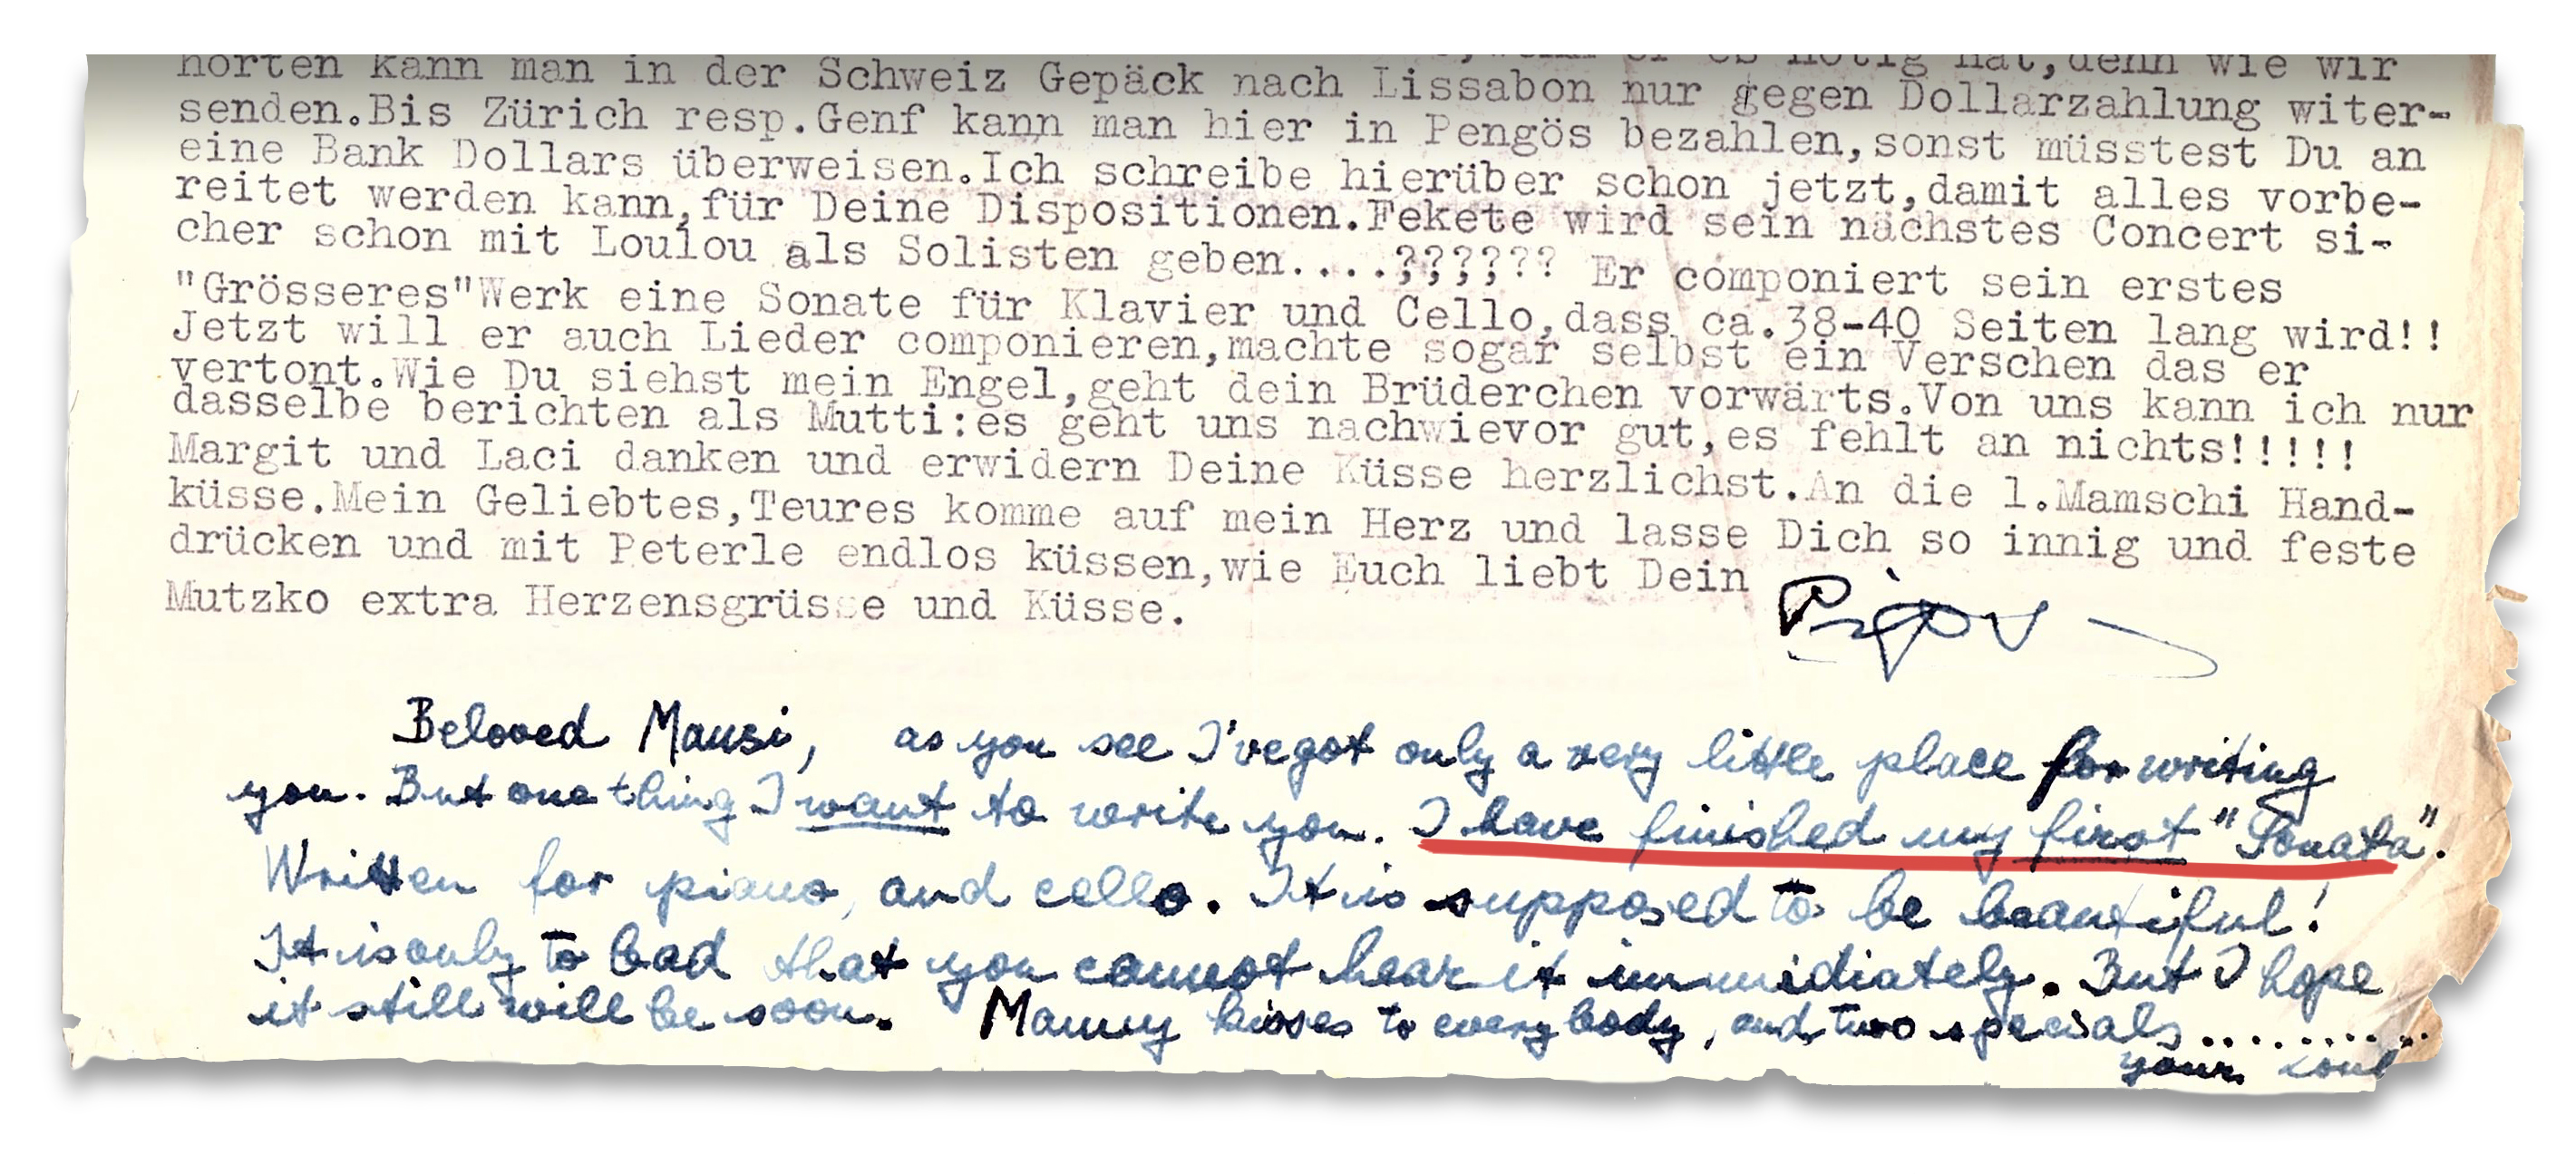 horten kann man in der Schweiz Gepäck nach Lissabon nur gegen Dollarzahlung witer-
senden.Bis Zürich resp.Genf kann man hier in Pengös bezahlen,sonst müsstest Du an
eine Bank Dollars überweisen.Ich schreibe hierüber schon jetzt,damit alles vorbe-
reitet werden kann,für Deine Dispositionen.Fekete wird sein nächstes Concert si-
cher schon mit Loulou als Solisten geben....?????? Er componiert sein erstes
"Grösseres"Werk eine Sonate für Klavier und Cello,dass ca.38-40 Seiten lang wird!!
Jetzt will er auch Lieder componieren,machte sogar selbst ein Verschen das er
vertont.Wie Du siehst mein Engel,geht dein Brüderchen vorwärts.Von uns kann ich nur
dasselbe berichten als Mutti:es geht uns nachwievor gut,es fehlt an nichts!!!!!
Margit und Laci danken und erwidern Deine Küsse herzlichst.An die l.Mamschi Hand-
küsse.Mein Geliebtes,Teures komme auf mein Herz und lasse Dich so innig und feste
drücken und mit Peterle endlos küssen,wie Euch liebt Dein
Mutzko extra Herzensgrüsse und Küsse.
Beloved Mausi, as you see I've got only a very little place for writing
you. But one thing I want to write you. I have finished my first "Sonata".
Written for piano, and cello. It is supposed to be beautiful!
It is only to bad that you cannot hear it immidiately. But I hope
it still will be soon. Manny kisses to everybody, and two specials..........
your